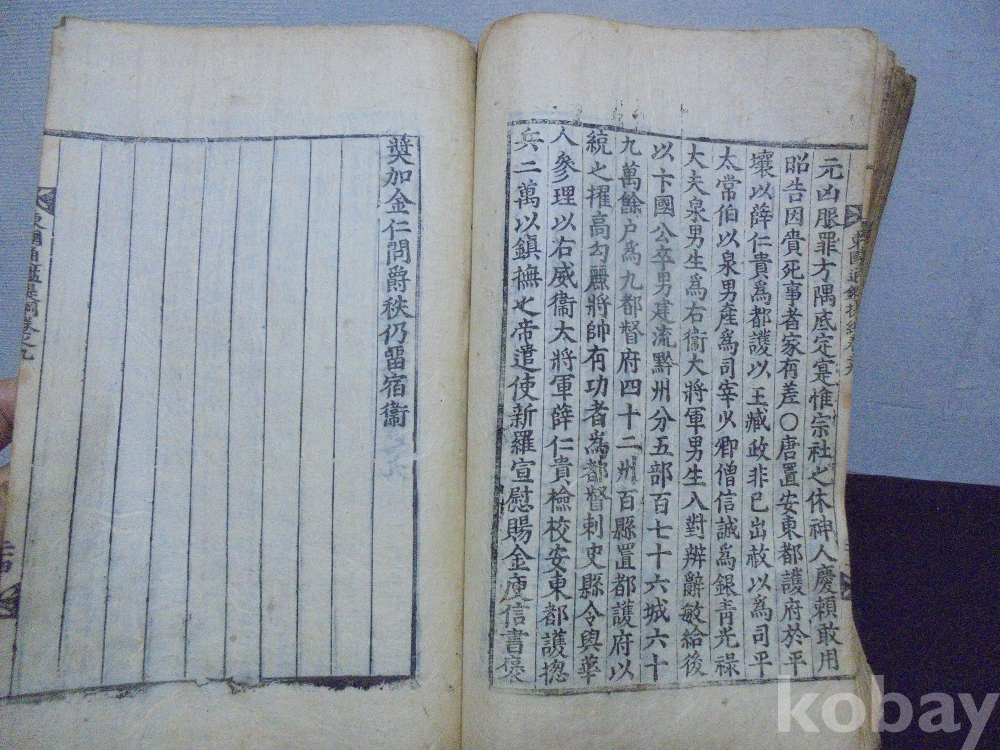 元凶服罪方隅底定寔惟宗社之休神人慶賴敢用
昭告因賚死事者家有差〇唐置安東都護府於平
壤以薛仁貴爲都護以王臧政非已出赦以爲司平
太常伯以泉男產爲司宰少卿僧信誠爲銀青光祿
大夫泉男生爲右衛大將軍男生入對辨辭敏給後
以卞國公卒男建流黔州分五部百七十六城六十
九萬餘户爲九都督府四十二州百縣置都護府以
統之擢高勾麗將帥有功者爲都督刺史縣令與華
人參理以右威衛大將軍薛仁貴檢校安東都護摠
兵二萬以鎮撫之帝遣使新羅宣慰賜金庾信書褒
東國通鑑提綱卷之九
奬加金仁問爵秩仍留宿衛
東國通鑑提綱卷之九
kobay